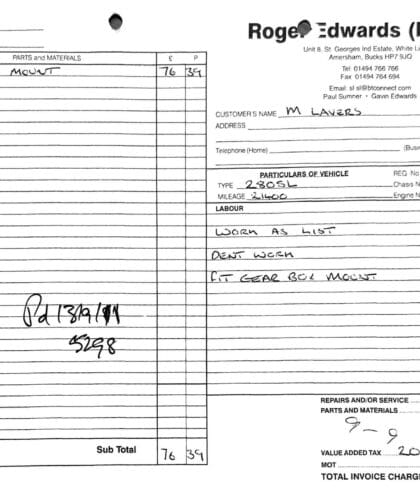 PARTS and MATERIALS £ P
MOUNT 76 39
Pd 13/9/11
5298
Sub Total 76 39
Roger Edwards (
Unit 8, St. Georges Ind Estate, White L
Amersham, Bucks HP7 9JQ
Tel: 01494 766 766
Fax: 01494 764 694
Email: sl.sl@btconnect.com
Paul Sumner • Gavin Edwards
CUSTOMER'S NAME M LAVERS
ADDRESS
Telephone (Home) (Busi
PARTICULARS OF VEHICLE REG. No
TYPE 280SL Chassis N
MILEAGE 21400 Engine N
LABOUR
WORK AS LIST
DENT WORK
FIT GEAR BOX MOUNT
REPAIRS AND/OR SERVICE
PARTS AND MATERIALS
9-9
VALUE ADDED TAX 20
MOT
TOTAL INVOICE CHARG